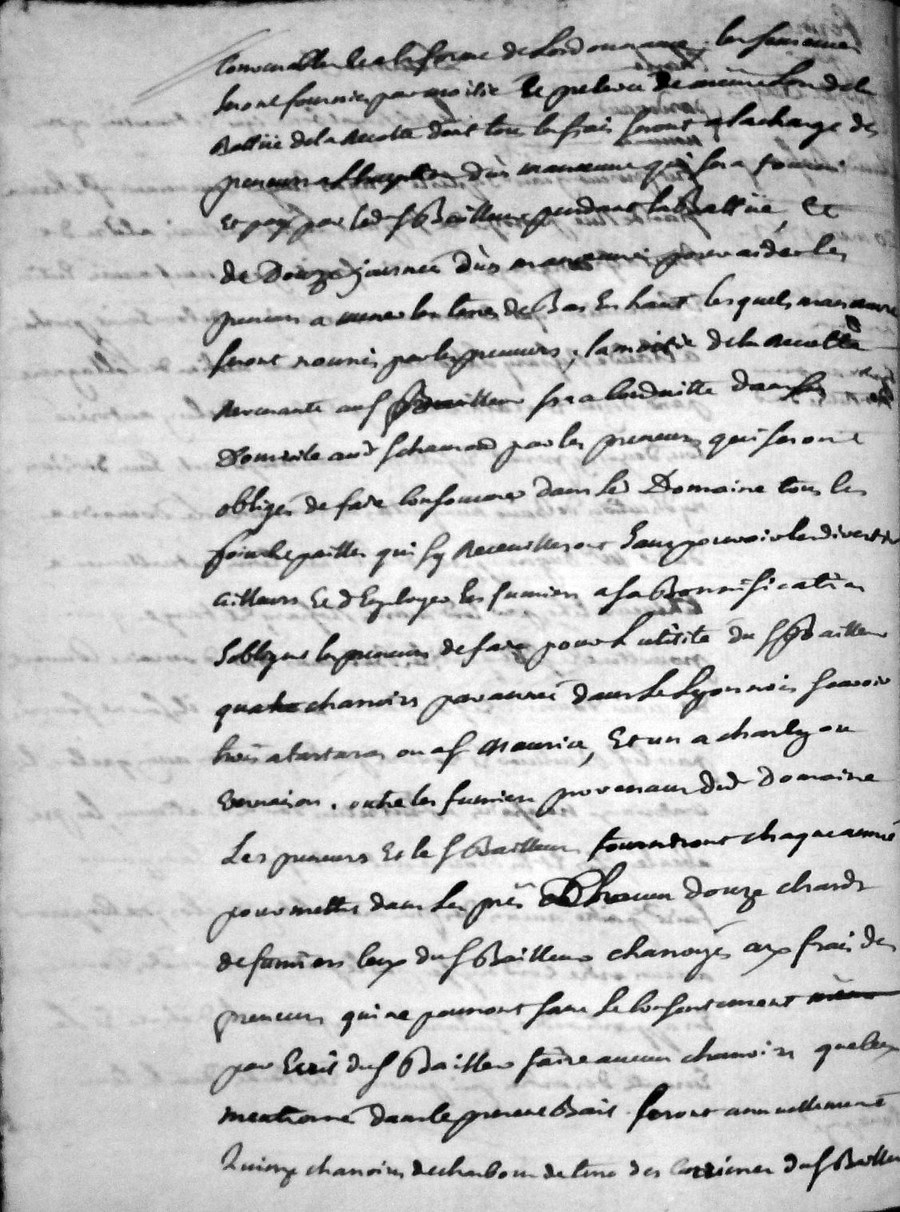 convenables et a la forme de Lordonnance. les semences
seront fournies par moitié et prelevé de même Lors de la
Battüe de la Recolte dont tous les frais seront a la charge des
preneurs a d'un manœuvre qui sera fourni
et payé par led sr Bailleur pendant la Battüe, et
de Douze journées d'un manœuvre pour aider les
preneurs a mener les terres de Bas en haut lesquels manœuvre
seront nourris par les preneurs, la moitié de la Recolte
Revenante aud sr Bailleur sera conduitte dans son
Domicile aud par les preneurs qui seront
obligés de faire consommer dans led Domaine tous les
foin et pailles qui sy Receuilleront sans pouvoir les divertir
ailleurs et d'Employer les fumiers a sa Bonnification
soblige les preneurs de faire pour L'utilité du sr Bailleur
quatre charrois par année dans le Lyonnois savoir
trois a tartaras ou a st Maurice, et un a charly ou
vernaison. outre les fumiers provenant dud Domaine
Les preneurs et le sr Bailleur fourniront chaque année
pour mettre dans les prés chacun douze chards
de fumiers ceux du sr Bailleur charroyés aux frais des
preneurs qui ne pourront sans le consentement
par Ecrit du sr Bailleur faire aucun charrois que ceux
mentionné dans le present Bail. feront annuellement
charrois de charbon de terre des du sr Bailleur